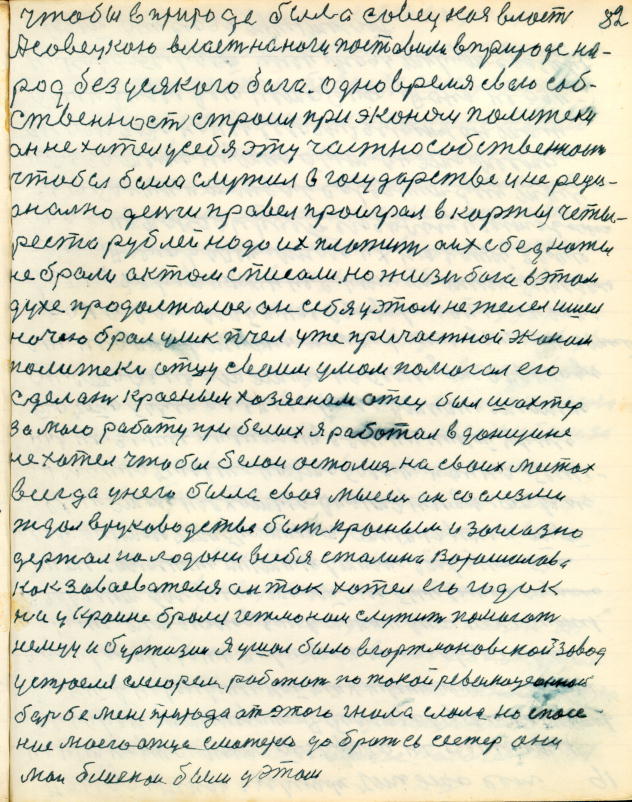 чтобы в природе была совецкая власть 82
А совецкою власть на ноги поставили в природе на-
род без усякого бога. Одно время свою соб-
ственность строил при эконом политеки
он не хотел у себя эту частно собственность
чтобы была служил в государстве и не
деньги провел проиграл в карты четы-
реста рублей надо их платить а их с бедноты
не брали актом списали. но жизнь бога в этом
духе продолжалас он себя у этом не жалел
брал улик пчел уже при частной эконом
политеки отцу своим умом помогал его
сделать красным хозяенам отец был шахтер
за мою работу при белых я работал в донщине
не хотел чтобы белои осталис на своих местах
всегда у него была своя мысель он со слизми
ждал в руководстве быть красным и заглазно
держал на лодони в себя сталина Ворошилова
как заваевателя он так хотел его годок
на украине брали гетмонам служить помогать
немцу и буржазии Я ушол было в гортмоновской завод
устроелся слесорем работат по такой революцеонной
барбе мене природа от этого гнала слала на спасе-
ние моего отца с матерю да братсь сестер они
мои блиской были у этом